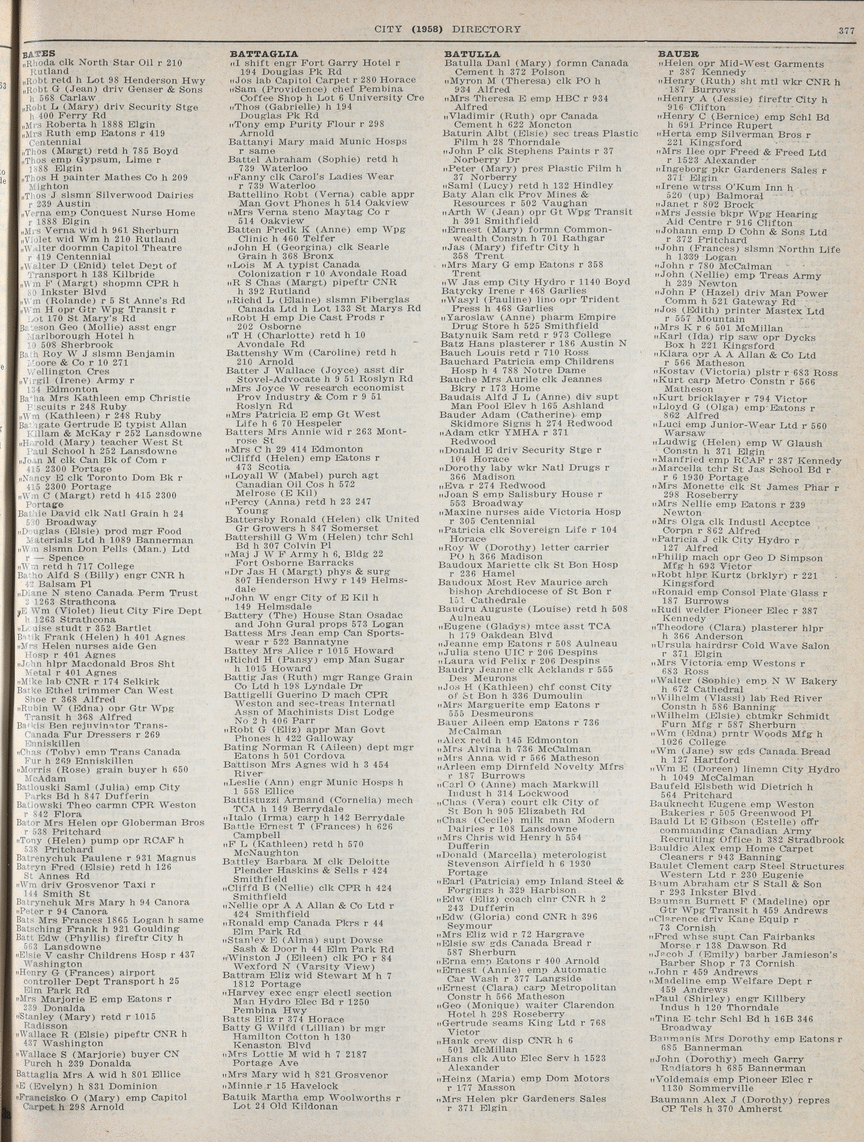 CITY (1958) DIRECTORY
377
BATES
„Rhoda clk North Star Oil r 210
Rutland
„Robt retd h Lot 98 Henderson Hwy
„Robt G (Jean) driv Genser & Sons
h 568 Carlaw
„Robt L (Mary) driv Security Stge
h 400 Perry Rd
„Mrs Roberta h 1888 Elgin
„Mrs Ruth emp Eatons r 419
Centennial
„Thos (Margt) retd h 785 Boyd
„Thos emp Gypsum, Lime r
1888 Elgin
„Thos H painter Mathes Co h 209
Mighton
„Thos J slsmn Silverwood Dairies
r 239 Austin
„Verna emp Conquest Nurse Home
r 1888 Elgin
„Mrs Verna wid h 961 Sherburn
„Violet wid Wm h 210 Rutland
„Walter doormn Capitol Theatre
r 419 Centennial
„Walter D (Enid) telet Dept of
Transport h 138 Kilbride
„Wm F (Margt) shopmn CPR h
80 Inkster Blvd
„Wm (Rolande) r 5 St Anne's Rd
„Wm H opr Gtr Wpg Transit r
Lot 170 St Mary's Rd
Bateson Geo (Mollie) asst engr
Marlborough Hotel h
10 508 Sherbrook
Bath Roy W J slsmn Benjamin
Moore & Co r 10 271
Wellington Cres
„Virgil (Irene) Army r
134 Edmonton
Batha Mrs Kathleen emp Christie
Biscuits r 248 Ruby
„Wm (Kathleen) r 248 Ruby
Bathgate Gertrude E typist Allan
Killam & McKay r 252 Lansdowne
„Harold (Mary) teacher West St
Paul School h 252 Lansdowne
„Jean M clk Can Bk of Com r
415 2300 Portage
„Nancy E clk Toronto Dom Bk r
415 2300 Portage
„Wm C (Margt) retd h 415 2300
Portage
Bathie David clk Natl Grain h 24
530 Broadway
„Douglas (Elsie) prod mgr Food
Materials Ltd h 1089 Bannerman
„Wm slsmn Don Pells (Man.) Ltd
r — Spence
„Wm retd h 717 College
Batho Alfd S (Billy) engr CNR h
42 Balsam Pl
„Diane N steno Canada Perm Trust
r 1263 Strathcona
„E Wm (Violet) lieut City Fire Dept
h 1263 Strathcona
„Louise studt r 352 Bartlet
Batik Frank (Helen) h 401 Agnes
„Mrs Helen nurses aide Gen
Hosp r 401 Agnes
„John hlpr Macdonald Bros Sht
Metal r 401 Agnes
„Mike lab CNR r 174 Selkirk
Batke Ethel trimmer Can West
Shoe r 368 Alfred
„Rubin W (Edna) opr Gtr Wpg
Transit h 368 Alfred
Batkis Ben rejuvintor Trans-
Canada Fur Dressers r 269
Enniskillen
„Chas (Toby) emp Trans Canada
Fur h 269 Enniskillen
„Morris (Rose) grain buyer h 650
McAdam
Batlouski Saml (Julia) emp City
Parks Bd h 847 Dufferin
Batlowski Theo carmn CPR Weston
r 842 Flora
Bator Mrs Helen opr Globerman Bros
r 538 Pritchard
„Tony (Helen) pump opr RCAF h
538 Pritchard
Batrenychuk Paulene r 931 Magnus
Batryn Fred (Elsie) retd h 126
St Annes Rd
„Wm driv Grosvenor Taxi r
144 Smith St
Batrynchuk Mrs Mary h 94 Canora
„Peter r 94 Canora
Bats Mrs Frances 1865 Logan h same
Batsching Frank h 921 Goulding
Batt Edw (Phyllis) fireftr City h
563 Lansdowne
„Elsie V cashr Childrens Hosp r 437
Washington
„Henry G (Frances) airport
controller Dept Transport h 25
Elm Park Rd
„Mrs Marjorie E emp Eatons r
239 Donalda
„Stanley (Mary) retd r 1015
Radisson
„Wallace R (Elsie) pipeftr CNR h
437 Washington
„Wallace S (Marjorie) buyer CN
Purch h 239 Donalda
Battaglia Mrs A wid h 801 Ellice
„E (Evelyn) h 831 Dominion
„Francisko O (Mary) emp Capitol
Carpet h 298 Arnold
BATTAGLIA
„I shift engr Fort Garry Hotel r
194 Douglas Pk Rd
„Jos lab Capitol Carpet r 280 Horace
„Sam (Providence) chef Pembina
Coffee Shop h Lot 6 University Cre
„Thos (Gabrielle) h 194
Douglas Pk Rd
„Tony emp Purity Flour r 298
Arnold
Battanyi Mary maid Munic Hosps
r same
Battel Abraham (Sophie) retd h
739 Waterloo
„Fanny clk Carol's Ladies Wear
r 739 Waterloo
Battellino Robt (Verna) cable appr
Man Govt Phones h 514 Oakview
„Mrs Verna steno Maytag Co r
514 Oakview
Batten Fredk K (Anne) emp Wpg
Clinic h 460 Telfer
„John H (Georgina) clk Searle
Grain h 368 Bronx
„Lois M A typist Canada
Colonization r 10 Avondale Road
„R S Chas (Margt) pipeftr CNR
h 392 Rutland
„Richd L (Elaine) slsmn Fiberglas
Canada Ltd h Lot 133 St Marys Rd
„Robt H emp Die Cast Prods r
202 Osborne
„T H (Charlotte) retd h 10
Avondale Rd
Battenshy Wm (Caroline) retd h
210 Arnold
Batter J Wallace (Joyce) asst dir
Stovel-Advocate h 9 51 Roslyn Rd
„Mrs Joyce W research economist
Prov Industry & Com r 9 51
Roslyn Rd
„Mrs Patricia E emp Gt West
Life h 6 70 Hespeler
Batters Mrs Annie wid r 263 Mont-
rose St
„Mrs C h 29 414 Edmonton
„Cliffd (Helen) emp Eatons r
473 Scotia
„Loyall W (Mabel) purch agt
Canadian Oil Cos h 572
Melrose (E Kil)
„Percy (Anna) retd h 23 247
Young
Battersby Ronald (Helen) clk United
Gr Growers h 847 Somerset
Battershill G Wm (Helen) tchr Schl
Bd h 307 Colvin Pl
„Maj J W F Army h 6, Bldg 22
Fort Osborne Barracks
„Dr Jas H (Margt) phys & surg
807 Henderson Hwy r 149 Helms-
dale
„John W engr City of E Kil h
149 Helmsdale
Battery (The) House Stan Osadac
and John Gural props 573 Logan
Battess Mrs Jean emp Can Sports-
wear r 522 Bannatyne
Battey Mrs Alice r 1015 Howard
„Richd H (Pansy) emp Man Sugar
h 1015 Howard
Battig Jas (Ruth) mgr Range Grain
Co Ltd h 198 Lyndale Dr
Battigelli Guerino D mach CPR
Weston and sec-treas Internatl
Assn of Machinists Dist Lodge
No 2 h 406 Parr
„Robt G (Eliz) appr Man Govt
Phones h 422 Galloway
Bating Norman R (Aileen) dept mgr
Eatons h 501 Cordova
Battison Mrs Agnes wid h 3 454
River
„Leslie (Ann) engr Munic Hosps h
1 558 Ellice
Battistuzzi Armand (Cornelia) mech
TCA h 149 Berrydale
„Italo (Irma) carp h 142 Berrydale
Battle Ernest T (Frances) h 626
Campbell
„F L (Kathleen) retd h 570
McNaughton
Battley Barbara M clk Deloitte
Plender Haskins & Sells r 424
Smithfield
„Cliffd B (Nellie) clk CPR h 424
Smithfield
„Nellie opr A A Allan & Co Ltd r
424 Smithfield
„Ronald emp Canada Pkrs r 44
Elm Park Rd
„Stanley E (Alma) supt Dowse
Sash & Door h 44 Elm Park Rd
„Winston J (Eileen) clk PO r 84
Wexford N (Varsity View)
Battram Eliz wid Stewart M h 7
1812 Portage
„Harvey exec engr electl section
Man Hydro Elec Bd r 1250
Pembina Hwy
Batts Eliz r 374 Horace
Batty G Wilfd (Lillian) br mgr
Hamilton Cotton h 130
Kenaston Blvd
„Mrs Lottie M wid h 7 2187
Portage Ave
„Mrs Mary wid h 821 Grosvenor
„Minnie r 15 Havelock
Batuik Martha emp Woolworths r
Lot 24 Old Kildonan
BATULLA
Batulla Danl (Mary) formn Canada
Cement h 372 Polson
„Myron M (Theresa) clk PO h
934 Alfred
„Mrs Theresa E emp HBC r 934
Alfred
„Vladimir (Ruth) opr Canada
Cement h 622 Moncton
Baturin Albt (Elsie) sec treas Plastic
Film h 28 Thorndale
„John P clk Stephens Paints r 37
Norberry Dr
„Peter (Mary) pres Plastic Film h
37 Norberry
„Saml (Lucy) retd h 132 Hindley
Baty Alan clk Prov Mines &
Resources r 502 Vaughan
„Arth W (Jean) opr Gt Wpg Transit
h 391 Smithfield
„Ernest (Mary) formn Common-
wealth Constn h 701 Rathgar
„Jas (Mary) fifeftr City h
358 Trent
„Mrs Mary G emp Eatons r 358
Trent
„W Jas emp City Hydro r 1140 Boyd
Batycky Irene r 468 Garlies
„Wasyl (Pauline) lino opr Trident
Press h 468 Garlies
„Yaroslaw (Anne) pharm Empire
Drug Store h 525 Smithfield
Batynuik Sam retd r 973 College
Batz Hans plasterer r 186 Austin N
Bauch Louis retd r 710 Ross
Bauchard Patricia emp Childrens
Hosp h 4 788 Notre Dame
Bauche Mrs Aurile clk Jeannes
Bkry r 173 Home
Baudais Alfd J L (Anne) div supt
Man Pool Elev h 165 Ashland
Bauder Adam (Catherine) emp
Skidmore Signs h 274 Redwood
„Adam ctkr YMHA r 371
Redwood
„Donald E driv Security Stge r
104 Horace
„Dorothy laby wkr Natl Drugs r
366 Madison
„Eva r 274 Redwood
„Joan S emp Salisbury House r
553 Broadway
„Maxine nurses aide Victoria Hosp
r 305 Centennial
„Patricia clk Sovereign Life r 104
Horace
„Roy W (Dorothy) letter carrier
PO h 366 Madison
Baudoux Mariette clk St Bon Hosp
r 236 Hamel
Baudoux Most Rev Maurice arch
bishop Archdiocese of St Bon r
151 Cathedrale
Baudru Auguste (Louise) retd h 508
Aulneau
„Eugene (Gladys) mtce asst TCA
h 179 Oakdean Blvd
„Jeanne emp Eatons r 508 Aulneau
„Julia steno UIC r 206 Despins
„Laura wid Felix r 206 Despins
Baudry Jeanne clk Acklands r 555
Des Meurons
„Jos H (Kathleen) chf const City
of St Bon h 336 Dumoulin
„Mrs Marguerite emp Eatons r
555 Desmeurons
Bauer Aileen emp Eatons r 736
McCalman
„Alex retd h 145 Edmonton
„Mrs Alvina h 736 McCalman
„Mrs Anna wid r 566 Matheson
„Arleen emp Dirnfeld Novelty Mfrs
r 187 Burrows
„Carl O (Anne) mach Markwill
Indust h 314 Lockwood
„Chas (Vera) court clk City of
St Bon h 905 Elizabeth Rd
„Chas (Cecile) milk man Modern
Dairies r 108 Lansdowne
„Mrs Chris wid Henry h 554
Dufferin
„Donald (Marcella) meterologist
Stevenson Airfield h 6 1930
Portage
„Earl (Patricia) emp Inland Steel &
Forgings h 329 Harbison
„Edw (Eliz) coach clnr CNR h 2
243 Dufferin
„Edw (Gloria) cond CNR h 396
Seymour
„Mrs Eliz wid r 72 Hargrave
„Elsie sw gds Canada Bread r
587 Sherburn
„Erna emp Eatons r 400 Arnold
„Ernest (Annie) emp Automatic
Car Wash r 377 Langside
„Ernest (Clara) carp Metropolitan
Constr h 566 Matheson
„Geo (Monique) waiter Clarendon
Hotel h 298 Roseberry
„Gertrude seams King Ltd r 768
Victor
„Hank crew disp CNR h 6
501 McMillan
„Hans clk Auto Elec Serv h 1523
Alexander
„Heinz (Maria) emp Dom Motors
r 177 Masson
„Mrs Helen pkr Gardeners Sales
r 371 Elgin
BAUER
„Helen opr Mid-West Garments
r 387 Kennedy
„Henry (Ruth) sht mtl wkr CNR h
187 Burrows
„Henry A (Jessie) fireftr City h
916 Clifton
„Henry C (Bernice) emp Schl Bd
h 691 Prince Rupert
„Herta emp Silverman Bros r
221 Kingsford
„Mrs Ilee opr Freed & Freed Ltd
r 1523 Alexander
„Ingeborg pkr Gardeners Sales r
371 Elgin
„Irene wtrss O'Kum Inn h
520 (up) Balmoral
„Janet r 802 Brock
„Mrs Jessie bkpr Wpg Hearing
Aid Centre r 916 Clifton
„Johann emp D Cohn & Sons Ltd
r 372 Pritchard
„John (Frances) slsmn Northn Life
h 1339 Logan
„John r 780 McCalman
„John (Nellie) emp Treas Army
h 239 Newton
„John P (Hazel) driv Man Power
Comm h 521 Gateway Rd
„Jos (Edith) printer Mastex Ltd
r 557 Mountain
„Mrs K r 6 501 McMillan
„Karl (Ida) rip saw opr Dycks
Box h 221 Kingsford
„Klara opr A A Allan & Co Ltd
r 566 Matheson
„Kostav (Victoria) plstr r 683 Ross
„Kurt carp Metro Constn r 566
Matheson
„Kurt bricklayer r 794 Victor
„Lloyd G (Olga) emp Eatons r
862 Alfred
„Luci emp Junior-Wear Ltd r 560
Warsaw
„Ludwig (Helen) emp W Glaush
Constn h 371 Elgin
„Manfried emp RCAF r 387 Kennedy
„Marcella tchr St Jas School Bd r
r 6 1930 Portage
„Mrs Monette clk St James Phar r
298 Roseberry
„Mrs Nellie emp Eatons r 239
Newton
„Mrs Olga clk Industl Acceptce
Corpn r 862 Alfred
„Patricia J clk City Hydro r
127 Alfred
„Philip mach opr Geo D Simpson
Mfg h 693 Victor
„Robt hlpr Kurtz (brklyr) r 221
Kingsford
„Ronald emp Consol Plate Glass r
187 Burrows
„Rudi welder Pioneer Elec r 387
Kennedy
„Theodore (Clara) plasterer hlpr
h 366 Anderson
„Ursula hairdrsr Cold Wave Salon
r 371 Elgin
„Mrs Victoria emp Westons r
683 Ross
„Walter (Sophie) emp N W Bakery
h 672 Cathedral
„Wilhelm (Vlassi) lab Red River
Constn h 586 Banning
„Wilhelm (Elsie) cbtmkr Schmidt
Furn Mfg r 587 Sherburn
„Wm (Edna) prntr Woods Mfg h
1026 College
„Wm (Jane) sw gds Canada Bread
h 127 Hartford
„Wm E (Doreen) linemn City Hydro
h 1049 McCalman
Baufeld Elsbeth wid Dietrich h
564 Pritchard
Bauknecht Eugene emp Weston
Bakeries r 505 Greenwood Pl
Bauld Lt E Gibson (Estelle) offr
commanding Canadian Army
Recruiting Office h 382 Stradbrook
Bauldic Alex emp Home Carpet
Cleaners r 943 Banning
Baulet Clement carp Steel Structures
Western Ltd r 230 Eugenie
Baum Abraham ctr S Stall & Son
r 293 Inkster Blvd
Bauman Burnett F (Madeline) opr
Gtr Wpg Transit h 459 Andrews
„Clarence driv Kane Equip r
73 Cornish
„Fred whse supt Can Fairbanks
Morse r 138 Dawson Rd
„Jacob J (Emily) barber Jamieson's
Barber Shop r 73 Cornish
„John r 459 Andrews
„Madeline emp Welfare Dept r
459 Andrews
„Paul (Shirley) engr Killbery
Indus h 120 Thorndale
„Tina E tchr Schl Bd h 16B 346
Broadway
Baumanis Mrs Dorothy emp Eatons r
685 Bannerman
„John (Dorothy) mech Garry
Radiators h 685 Bannerman
„Voldemais emp Pioneer Elec r
1130 Sommerville
Baumann Alex J (Dorothy) repres
CP Tels h 370 Amherst